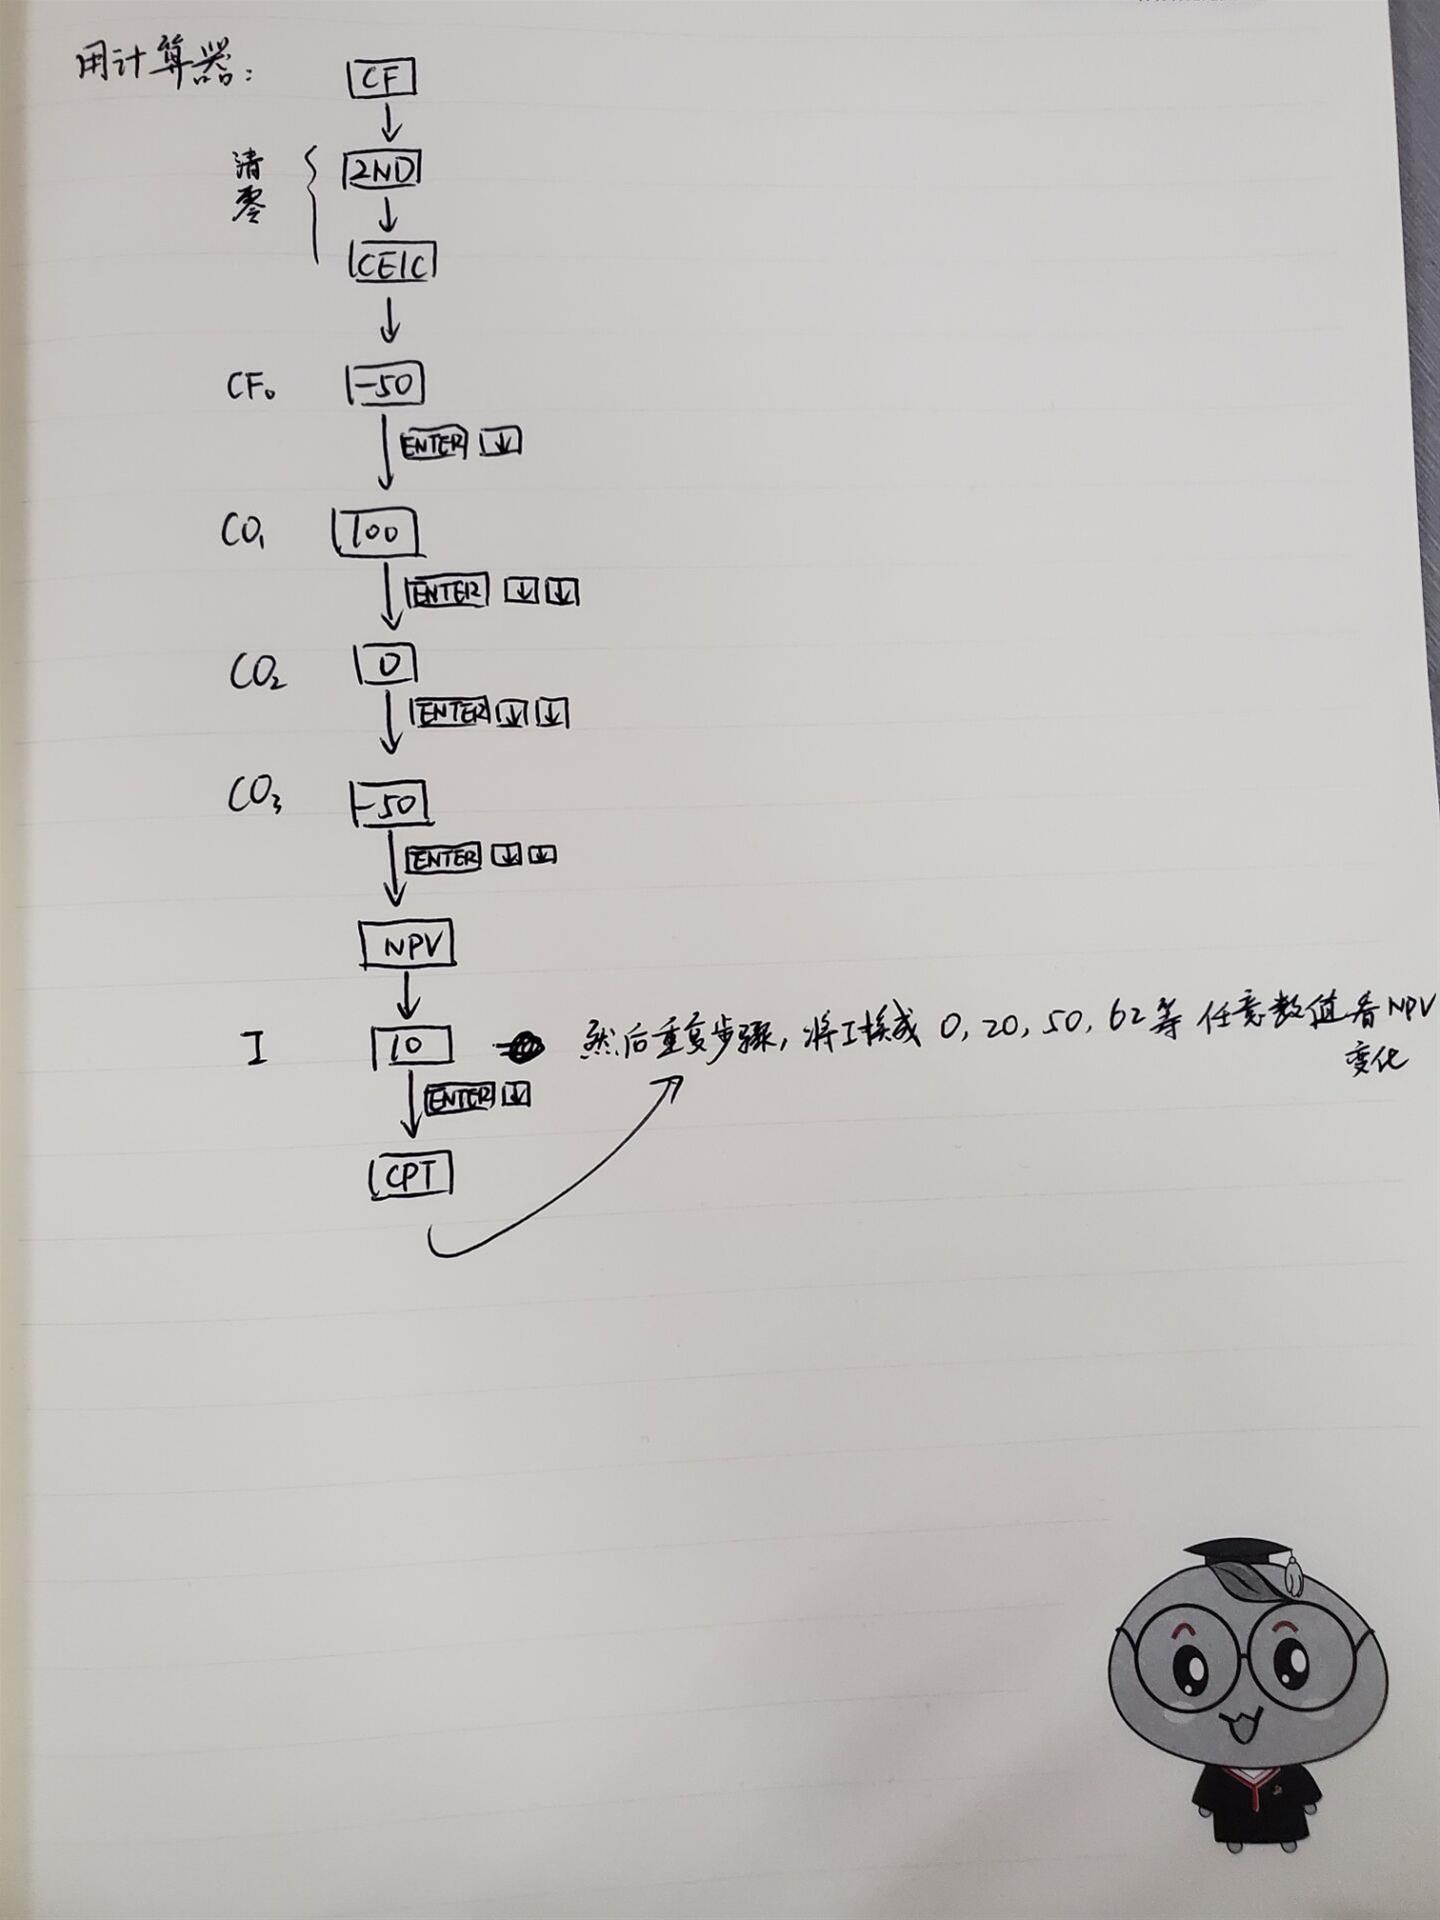 用计算器:
CF
↓
清零
2ND
↓
CE|C
↓
CF₀ -50
↓ ENTER ↓
CO₁ 100
↓ ENTER ↓ ↓
CO₂ 0
↓ ENTER ↓ ↓
CO₃ -50
↓ ENTER ↓ ↓
NPV
↓
I 10 然后重复步骤, 将I换成 0, 20, 50, 62等 任意数值看NPV
变化
↓ ENTER ↓
CPT